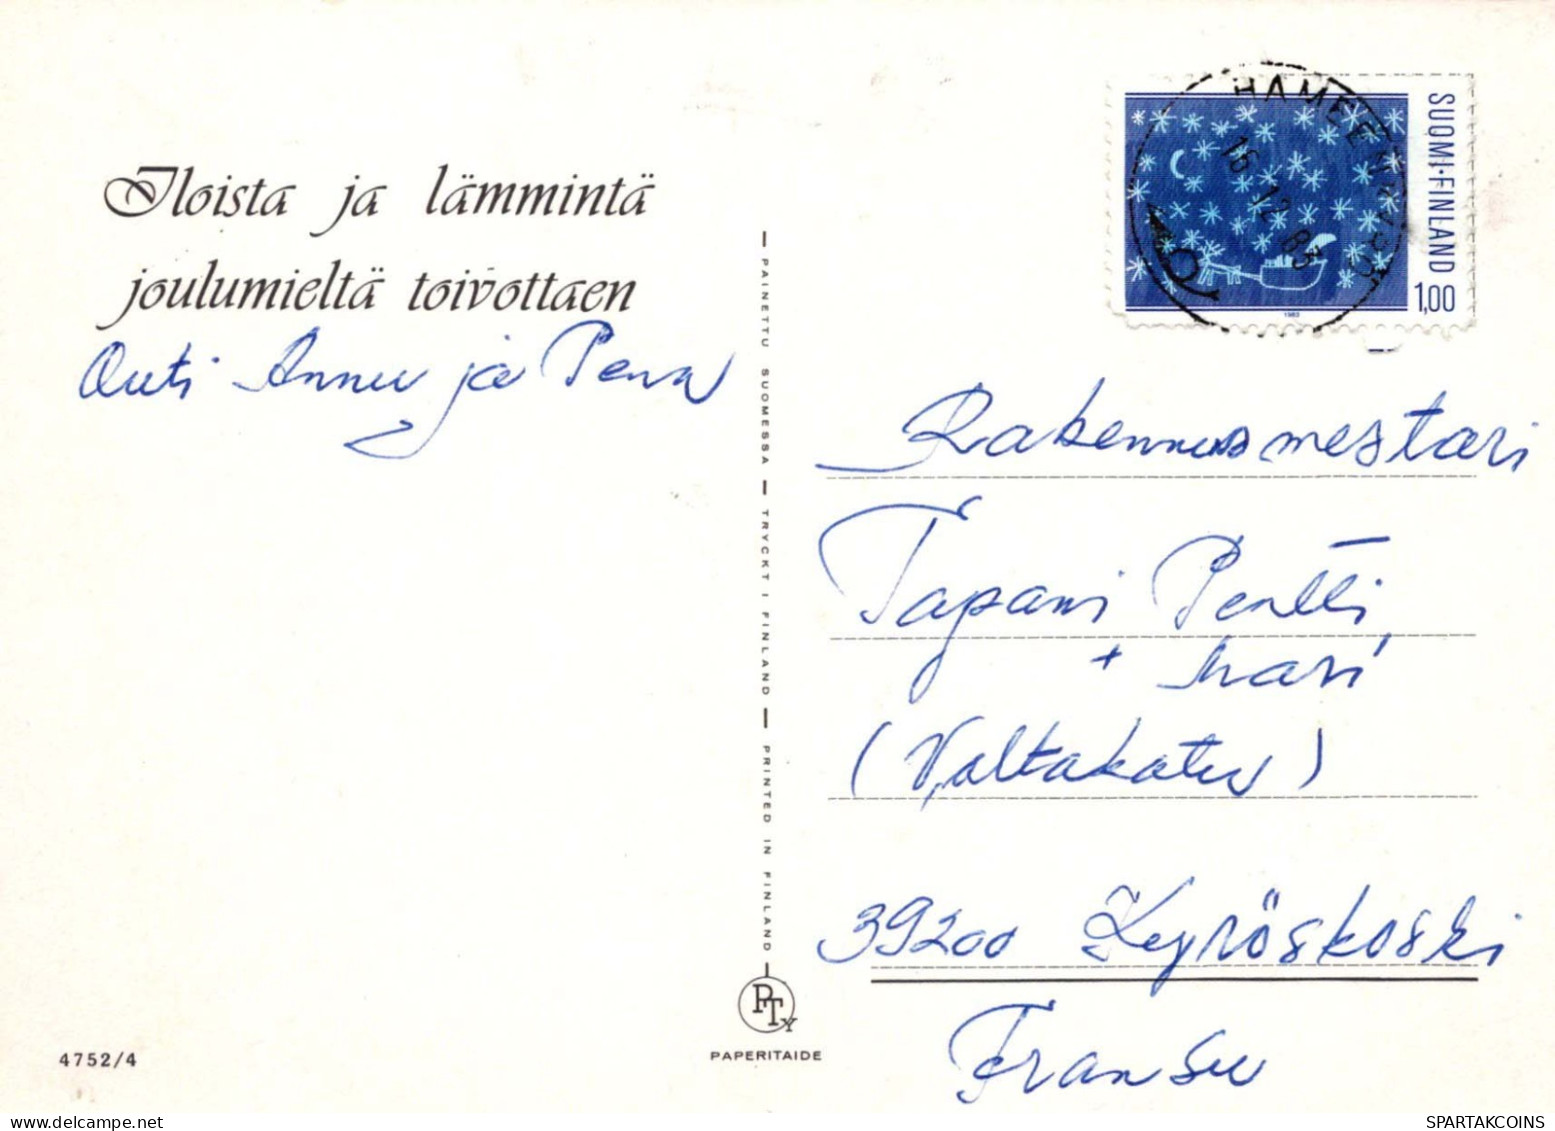 Iloista ja lämmintä
joulumieltä toivottaen
Outi Annu ja Pena
4752/4
PAINETTU SUOMESSA — TRYCKT I FINLAND — PRINTED IN FINLAND
PTY
PAPERITAIDE
HÄMEENKYRÖ
16.12.83
SUOMI·FINLAND
1,00
1983
Rakennusmestari
Tapani Pentti,
+ Mari
(Valtakatu)
39200 Kyröskoski
Fransu
SPARTAKCOINS